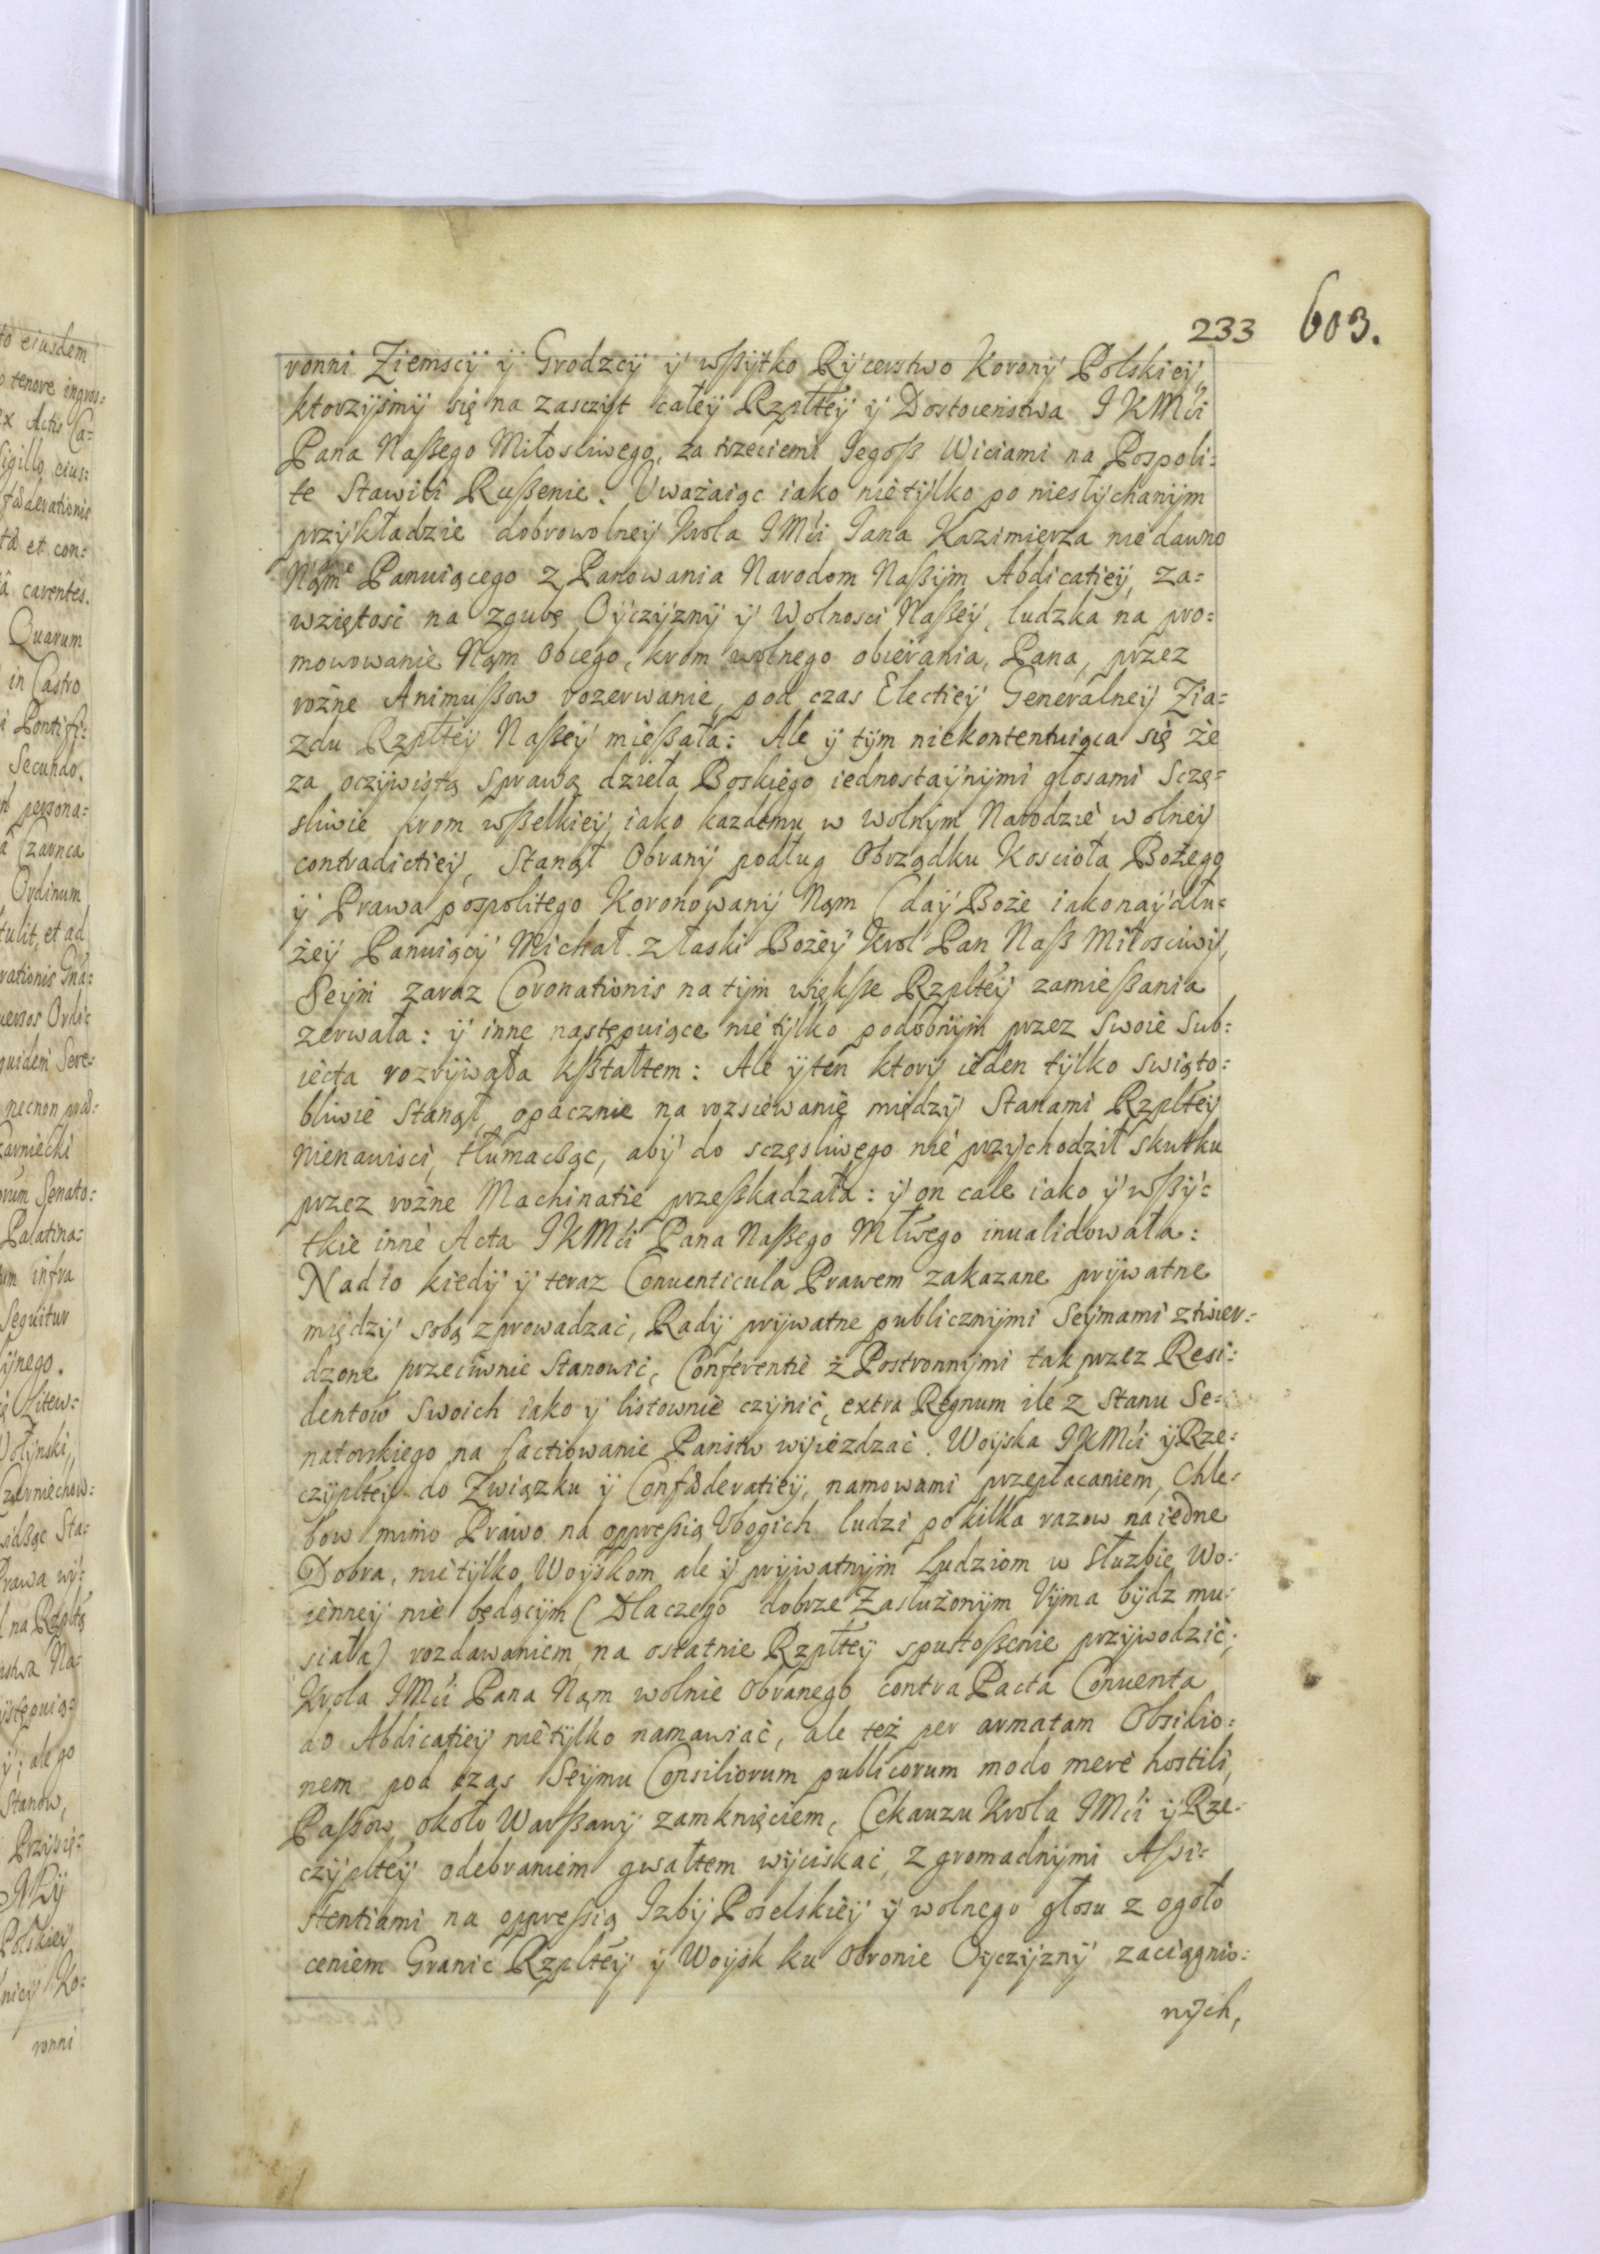 233 603.
ronni Ziemscÿ ÿ Grodzcÿ ÿ wßÿtko Rÿcerstwo Koronÿ Polskieÿ,
ktorzÿsmÿ się na zasczÿt całeÿ Rzpłteÿ ÿ Dostoieństwa IKMći
Pana Naßego Miłosciwego, za trzeciemi Iegoß Wiciami na Pospoli=
te Stawili Rußenie. Vważaiąc iako nietÿlko po niesłÿchanÿm
przÿkładzie dobrowolneÿ Krola IMći Iana Kazimierza niedawno
Nąm Panuiącego z Panowania Narodom Naßÿm Abdicatieÿ, za=
wziętość na zgubę Oÿczÿznÿ ÿ Wolnosci Naßeÿ, ludzka na pro=
mowowanie Nąm Obcego, krom wolnego obierania, Pana, przez
rożne Animußow rozerwanie, pod czas Electieÿ Generalneÿ Zia=
zdu Rzpłteÿ Naßeÿ mießała: Ale ÿ tÿm niekontentuiąca się że
za oczÿwistą sprawą dzieła Boskiego iednostaÿnÿmi głosami sczę=
sliwie krom wßelkieÿ iako każdemu w wolnÿm Narodzie wolneÿ
contradictieÿ, Stanął Obranÿ podług Obrządku Koscioła Bożego
ÿ Prawa pospolitego Koronowanÿ Nąm (daÿ Boże iako naÿdłu=
żeÿ Panuiącÿ Michał z łaski Bożeÿ Krol Pan Naß Miłosciwÿ,
Seÿm zaraz Coronationis na tÿm więkße Rzpłteÿ zamießania
zerwała: ÿ inne następuiące nietÿlko podobnÿm przez Swoie Sub=
iecta rozrÿwała kßtałtem: Ale ÿ ten ktorÿ ieden tÿlko swiąto=
bliwie Stanął, opacznie na rozsiewanie międzÿ Stanami Rzpłteÿ
nienawisci, tłumacząc, abÿ do sczęsliwego nie przÿchodził skutku
przez rożne Machinatie przeßkadzała: ÿ on cale iako ÿ wßÿ=
tkie inne Acta IKMći Pana Naßego Młwego inualidowała:
Nadto kiedÿ ÿ teraz Conuenticula Prawem zakazane prÿwatne
międzÿ sobą zprowadzać, Radÿ prÿwatne publicznÿmi Seÿmami ztwier=
dzone przeciwnie Stanowić, Conferentie z Postronnÿmi tak przez Resi=
dentow swoich iako ÿ listownie czÿnić, extra Regnum ile z Stanu Se=
natorskiego na factiowanie Państw wÿieżdzać. Woÿska IKMći ÿ Rze=
czÿpłteÿ do Związku ÿ Confœderatieÿ, namowami przepłacaniem, Chle=
bow mimo Prawo na oppressią Vbogich ludzi po kilka razow na iedne
Dobra, nietÿlko Woÿskom ale ÿ prÿwatnÿm Ludziom w Służbie Wo=
ienneÿ nie będącÿm (Dlaczego dobrze Zasłużonÿm Vÿma bÿdz mu=
siała) rozdawaniem, na ostatnie Rzpłteÿ spustoßenie przÿwodzić;
Krola IMći Pana Nąm wolnie Obranego contra Pacta Conuenta
do Abdicatieÿ nietÿlko namawiać, ale też per armatam Obsidio=
nem pod czas Seÿmu Consiliorum publicorum modo merè hostili,
Paßow około Warßawÿ zamknięciem, Cekauzu Krola IMći ÿ Rze=
czÿpłteÿ odebraniem gwałtem wÿciskać, zgromadnÿmi Assi=
stentiami na oppressią Izbÿ Poselskieÿ ÿ wolnego głosu z ogoło
ceniem Granic Rzpłteÿ ÿ Woÿsk ku Obronie Oÿczÿznÿ zaciągnio=
nÿch,